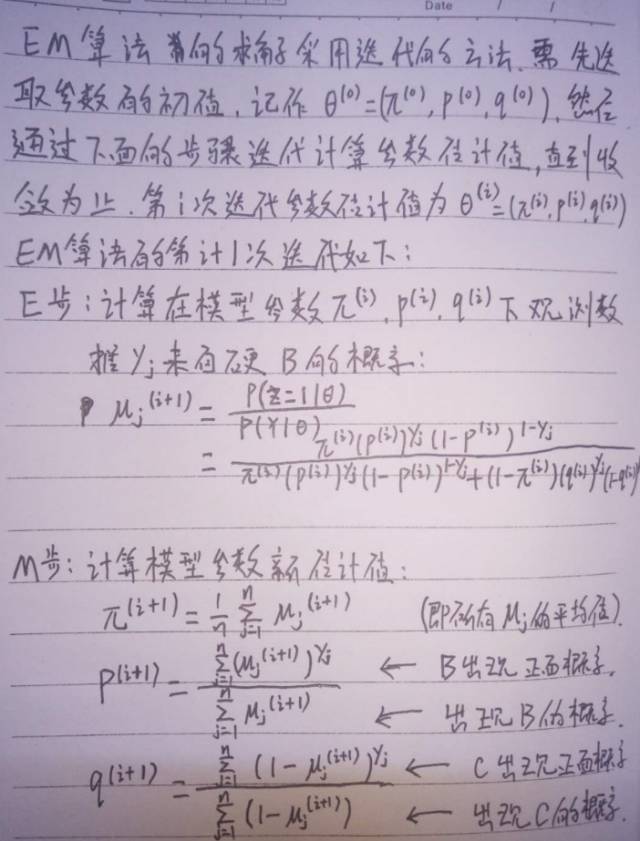 Date / /
EM算法 的求解采用迭代的方法.需先选
取参数的初值,记作 θ⁽⁰⁾=(π⁽⁰⁾, p⁽⁰⁾, q⁽⁰⁾),然后
通过下面的步骤迭代计算参数估计值,直到收
敛为止.第i次迭代参数估计值为 θ⁽ⁱ⁾=(π⁽ⁱ⁾,p⁽ⁱ⁾,q⁽ⁱ⁾)
EM算法的第i+1次迭代如下:
E步:计算在模型参数π⁽ⁱ⁾, p⁽ⁱ⁾, q⁽ⁱ⁾下观测数
据yⱼ来自硬B的概率:
μⱼ⁽ⁱ⁺¹⁾ = P(z=1|θ) / P(Y|θ)
= π⁽ⁱ⁾(p⁽ⁱ⁾)^yⱼ (1-p⁽ⁱ⁾)^1-yⱼ / π⁽ⁱ⁾(p⁽ⁱ⁾)^yⱼ(1-p⁽ⁱ⁾)^1-yⱼ+(1-π⁽ⁱ⁾)(q⁽ⁱ⁾)^yⱼ(1-q⁽ⁱ⁾)
M步:计算模型参数新估计值:
π⁽ⁱ⁺¹⁾ = 1/n ∑ⱼ₌₁ⁿ μⱼ⁽ⁱ⁺¹⁾ (即所有μⱼ的平均值).
p⁽ⁱ⁺¹⁾ = ∑ⱼ₌₁ⁿ(μⱼ⁽ⁱ⁺¹⁾)^yⱼ / ∑ⱼ₌₁ⁿ μⱼ⁽ⁱ⁺¹⁾ ← B出现正面概率.
← 出现B的概率.
q⁽ⁱ⁺¹⁾ = ∑ⱼ₌₁ⁿ (1-μⱼ⁽ⁱ⁺¹⁾)^yⱼ / ∑ⱼ₌₁ⁿ (1-μⱼ⁽ⁱ⁺¹⁾) ← C出现正面概率
← 出现C的概率.